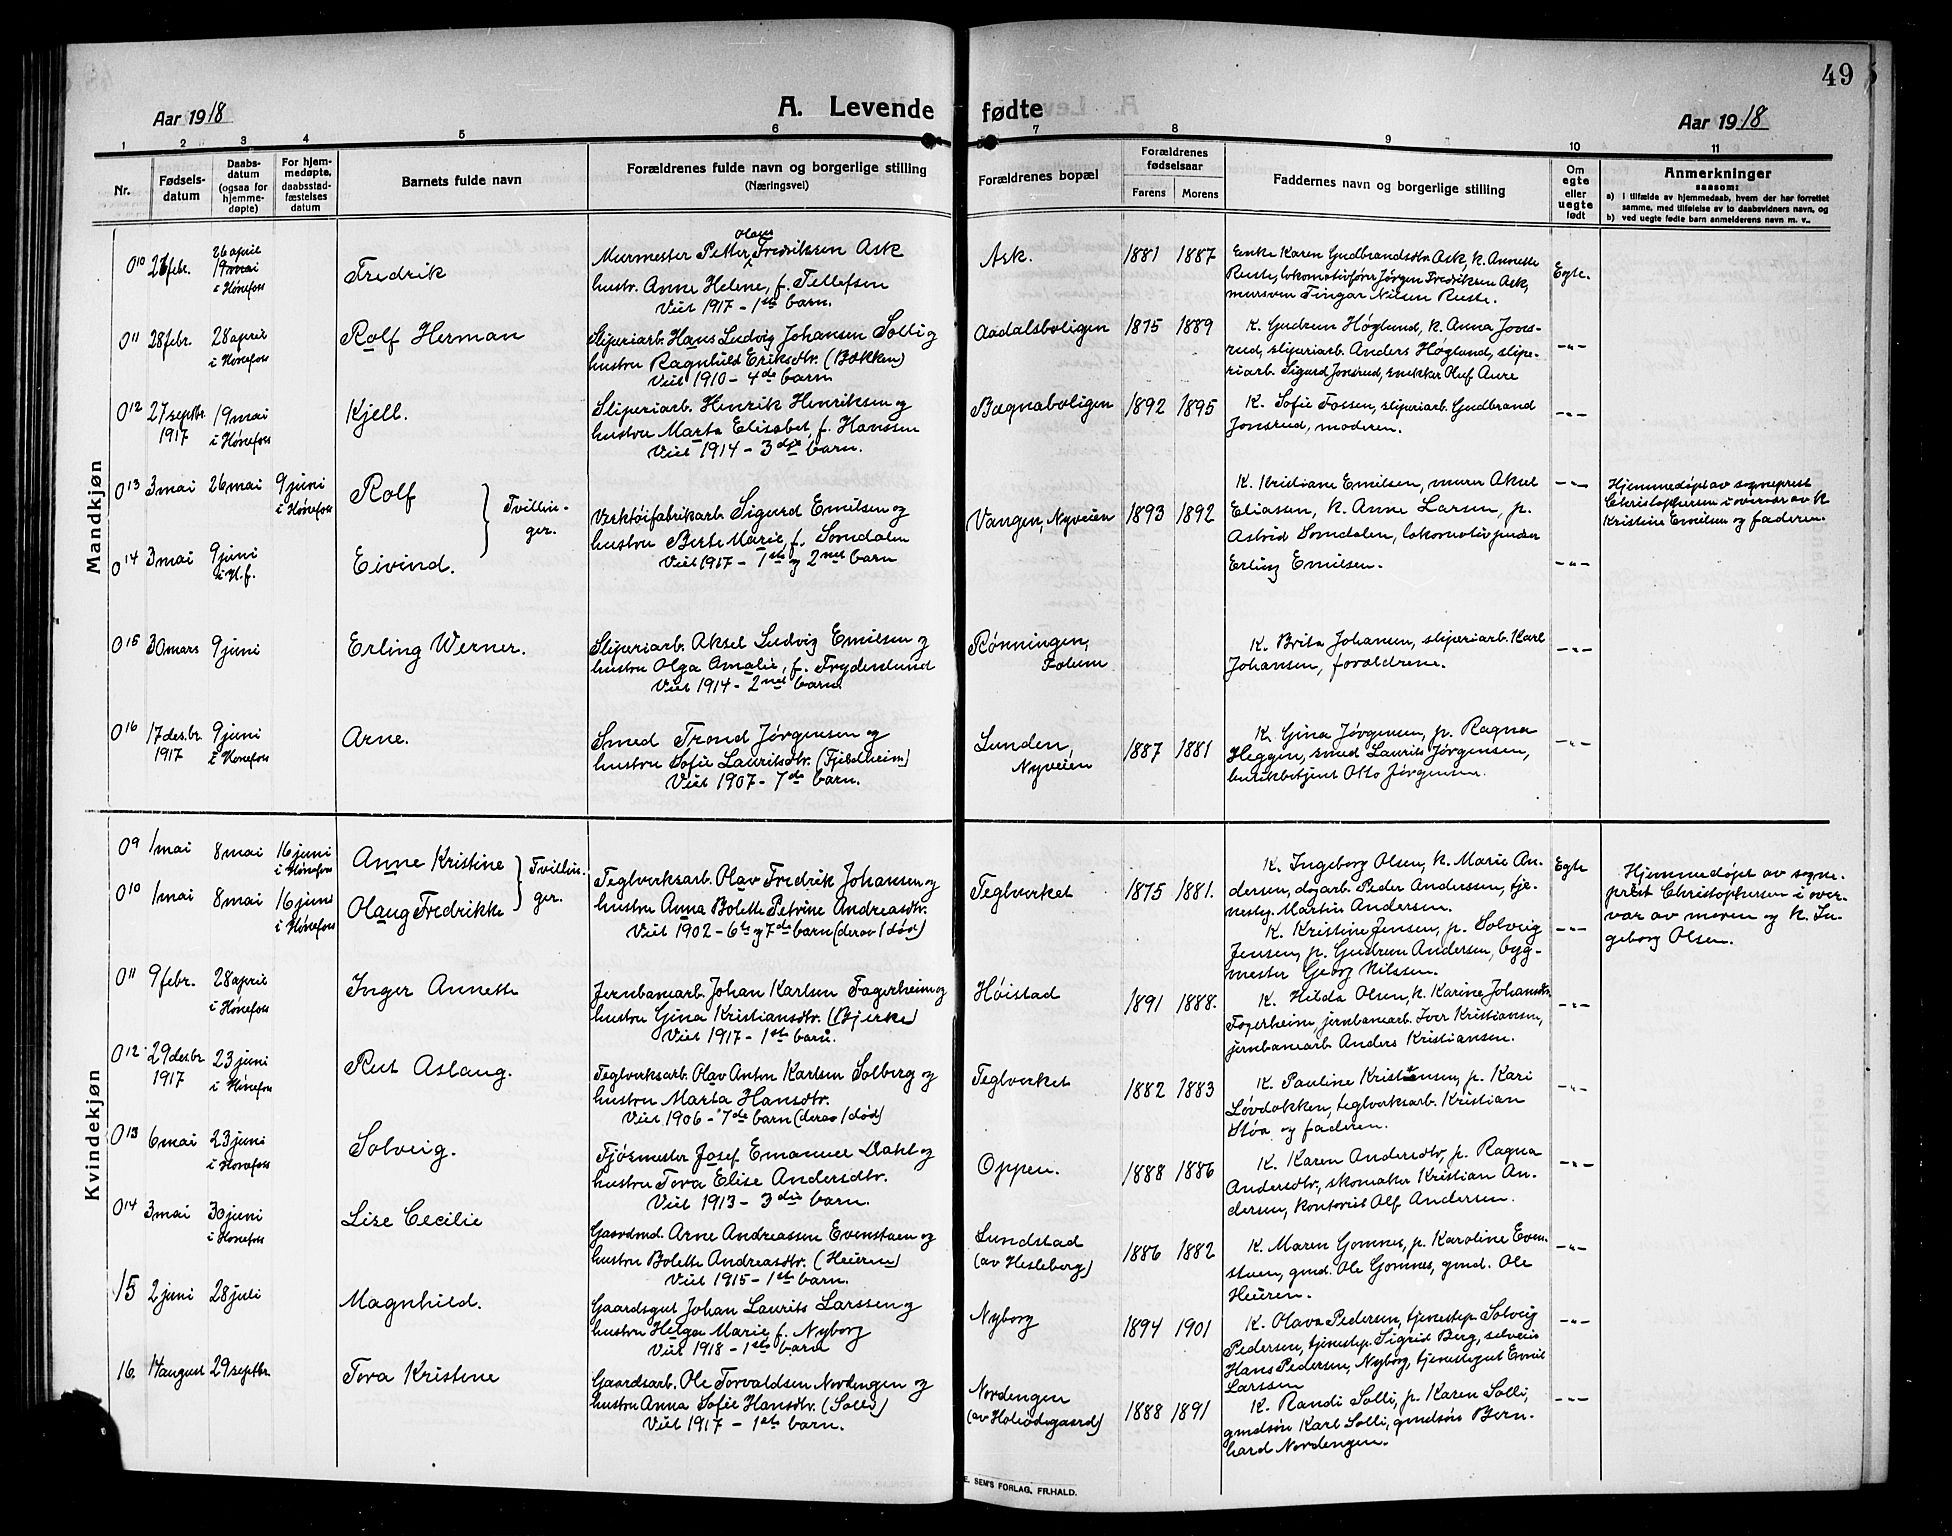 49
Aar 1918
A. Levende fødte
Aar 1918
1 2 3 4 5 6 7 8 9 10 11
Nr.
Fødsels-
datum
Daabs-
datum
(ogsaa for
hjemme-
døpte)
For hjem-
medøpte,
daabsstad-
fæstelses
datum
Barnets fulde navn
Forældrenes fulde navn og borgerlige stilling
(Næringsvei)
Forældrenes bopæl
Forældrenes
fødselsaar
Farens Morens
Faddernes navn og borgerlige stilling
Om
egte
eller
uegte
født
Anmerkninger
saasom:
a) i tilfælde av hjemmedaab, hvem der har forrettet
samme, med tilføielse av to daabsvidners navn, og
b) ved uegte fødte barn anmelderens navn m. v..
Mandkjøn
0 10 26 febr. 26 april
19 mai
i Hønefoss
Fredrik
Olaus
Murmester Petter Fredriksen Ask
hustr. Anne Helene, f. Tellefsen
Viet 1917 - 1ste barn.
Ask. 1881 1887
Enke Karen Gudbrandsdtr. Ask, k. Annette
Ruste, lokomotivfører Jørgen Fredriksen Ask,
mursven Fingar Nilsen Ruste.
Egte.
0 11 28 febr. 28 april
i Hønefoss
Rolf Herman
Sliperiarb. Hans Ludvig Johansen Solli og
hustru Ragnhild Eriksdtr. (Bakken)
Viet 1910 - 4de barn
Aadalsboligen 1875 1889
K. Gudrun Høglund, k. Anna Jons-
rud, sliperiarb. Anders Høglund, slipe-
riarb. Sigurd Jonsrud, snekker Oluf Aure
-"-
0 12 27 septbr. 1917 19 mai
i Hønefoss
Kjell.
Sliperiarb. Henrik Henriksen og
hustru Marta Elisabet, f. Hanssen
Viet 1914 - 3dje barn.
Bægnaboligen 1892 1895
K. Sofie Fossen, sliperiarb. Gudbrand
Jonsrud, moderen.
-"-
0 13 3 mai 26 mai 9 juni
i Hønefoss
Rolf
Tvillin-
ger.
Verktøifabrikarb. Sigurd Emilsen og
hustru Berte Marie, f. Somdalen
Viet 1917 - 1ste og 2net barn
Vangen, Nyveien 1893 1892
K. Kristiane Emilsen, murer Aksel
Eliassen, k. Anne Larsen, p.
Astrid Somdalen, lokomotivpudser
Erling Emilsen.
-"-
Hjemmedøpt av sogneprest
Christophersen i overvær av k.
Kristine Emilsen og faderen.
0 14 3 mai 9 juni
i H.f.
Eivind.
-"-
0 15 30 mars 9 juni
Erling Werner.
Sliperiarb. Aksel Ludvig Emilsen og
hustru Olga Amalie, f. Frydenlund
Viet 1914 - 2net barn.
Rønningen,
Folum
K. Brita Johansen, sliperiarb. Karl
Johansen, forældrene.
-"-
0 16 17 des.br. 1917 9 juni
i Hønefoss
Arne.
Smed Trond Jørgensen og
hustru Sofie Lauritsdtr. (Fjeldheim)
Viet 1907 - 7de barn.
Lunden,
Nyveien
1887 1881
K. Gina Jørgensen, p. Ragna
Heggen, smed Laurits Jørgensen,
butikbetjent Otto Jørgensen.
-"-
Kvindekjøn
0 9 1 mai 8 mai 16 juni
i Hønefoss
Anne Kristine
Tvillin-
ger.
0 10 1 mai 8 mai 16 juni
i Hønefoss
Olaug Fredrikke
Teglverksarb. Olav Fredrik Johansen og
hustru Anna Bolette Petrine Andreasdtr.
Viet 1902 - 6te og 7de barn (derav 1 død)
Teglverket 1875 1881.
K. Ingeborg Olsen, k. Marie An-
dersen, dagarb. Peder Andersen, tje-
nesteg. Martin Andersen.
K. Kristine Jensen, p. Solveig
Jensen, p. Gudrun Andersen, byg-
mester Georg Nilssen.
Egte
-"-
Hjemmedøpt av sogne-
prest Christophersen i over-
vær av moren og k. In-
geborg Olsen.
0 11 9 febr. 28 april
i Hønefoss
Inger Annette
Jernbanearb. Johan Karlsen Fagerheim og
hustru Gina Kristiansdtr. (Bjerke)
Viet 1917 - 1ste barn.
Høistad 1891 1888.
K. Hilda Olsen, k. Karine Johansdtr.
Fagerheim, jernbanearb. Iver Kristiansen,
jernbanearb Anders Kristiansen.
-"-
0 12 29 des.br 1917 23 juni
i Hønefoss
Rut Aslaug.
Teglverksarb. Olav Anton Karlsen Solberg og
hustru Marta Hansdtr.
Viet 1906 - 7de barn (derav 1 død)
Teglverket 1882 1883
K. Pauline Kristensen, p. Kari
Løvdokken, teglverksarb. Kristian
Støa og faderen.
-"-
0 13 6 mai 23 juni
i Hønefoss
Solveig.
Fjøsmester Josef Emanuel Dahl og
hustru Tora Elise Andersdtr.
Viet 1913 - 3die barn.
Oppen. 1888 1886
K. Karen Andersdtr, p. Ragna
Andersdtr, skomaker Kristian An-
dersen, kontorist Alf Andersen.
-"-
0 14 3 mai 30 juni
i Hønefoss
Lise Cecilie
Gaardmd. Arne Andreassen Evenstuen og
hustru Bolette Andreasdtr. (Heieren)
Viet 1915 - 1ste barn.
Lundstad
(av Hesleberg)
1886 1882
K. Maren Gomnes, p. Karoline Even-
stuen, gmd. Ole Gomnes, gmd. Ole
Heieren.
-"-
15 2 juni 28 juli
Magnhild.
Gaardsgut Johan Laurits Larssen og
hustru Helga Marie f. Nyborg
Viet 1918 - 1ste barn
Nyborg 1894 1901
K. Olava Pedersen, tjenestep. Solveig
Pedersen, tjenestep. Sigrid Berg, selveier
Hans Pedersen, Nyborg, tjenestegut Emil
Larssen
-"-
16. 14 august 29 septbr.
Tora Kristine
Gaardsarb. Ole Torvaldsen Nordengen og
hustru Anna Sofie Hansdtr. (Solli)
Viet 1917 - 1ste barn.
Nordengen
1888 1891
K. Randi Solli, p. Karen Solli,
gmdsøn Karl Solli, gmdsøn Bern-
hard Nordengen.
-"-
E. SEM'S FORLAG, FR.HALD.